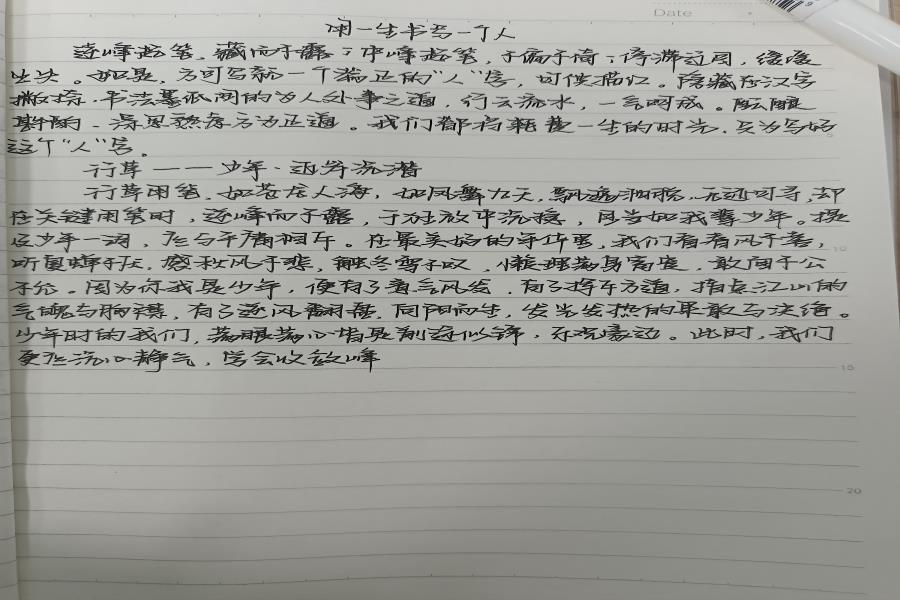 Date
用一生书写一个人
逆峰起笔,藏而于露;中峰起笔,于偏于倚;停滞迂回,缓缓
出尖。如是,方可写就一个端正的“人”字,可供描红。隐藏在汉字
撇捺,书法墨纸间的为人处事之道,行云流水,一气呵成。
斟酌、深思熟虑方为正道。我们都将耗费一生的时光,只为写好
这个“人”字。
行草——少年·迅奔流潜
行草用笔,如苍龙入海,如凤舞九天,飘逸洒脱,无迹可寻,却
在关键用笔时,逆峰而于露,于狂放中沉稳,自当如我辈少年。提
这少年一词,在与平庸相斥。在最美好的年华里,我们看春风于喜,
听夏蝉于厌,感秋风于悲,触冬雪于叹,慷慨激昂高度,敢问于公
于允。因为你我是少年,便有了意气风发,有了挥斥方遒,指点江山的
气魄与胸襟,有了逐风翻卷,向阳而生,发光发热的果敢与决绝。
少年时的我们,满眼满心皆是前途似锦,不觉遥远。此时,我们
更应沉心静气,学会收敛峰
10
15
20